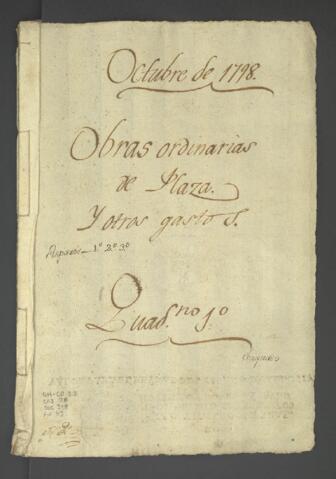 Octubre de 1798.
Obras ordinarias
de Plaza.
Y otros gastos.
1º 2º 3º
Quad.no 1.º